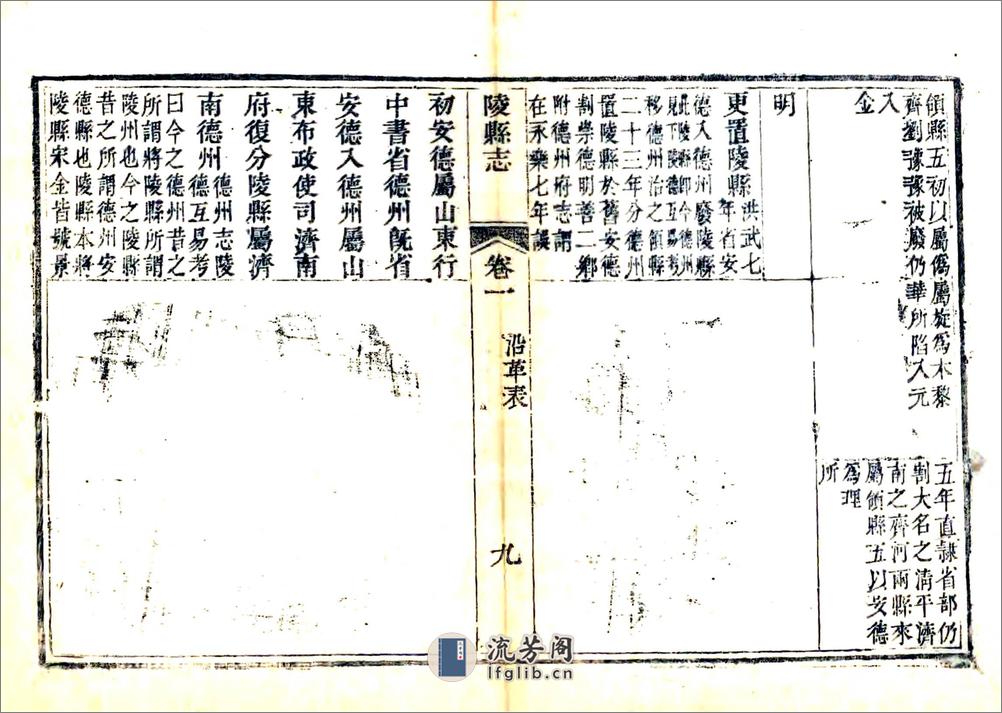 領縣五初以屬僞屬旋爲木黎
齊劉豫豫被廢仍華所陷入元
入
金
五年直隷省部仍
割大名之清平濟
南之齊河兩縣來
屬領縣五以安德
爲理
所
明
更置陵縣洪武七
年省安
德入德州廢陵縣
此陵縣即今德州
見下陵德互易考
移德州治之領縣
二十三年分德州
置陵縣於舊安德
割崇德明善二鄉
附德州府志謂
在永樂七年誤
陵縣志
卷一
沿革表
九
初安德屬山東行
中書省德州旣省
安德入德州屬山
東布政使司濟南
府復分陵縣屬濟
南德州德州志陵
德互易考
曰今之德州昔之
所謂將陵縣所謂
陵州也今之陵縣
昔之所謂德州安
德縣也陵縣本將
陵縣宋金皆號景
流芳阁
lfglib.cn